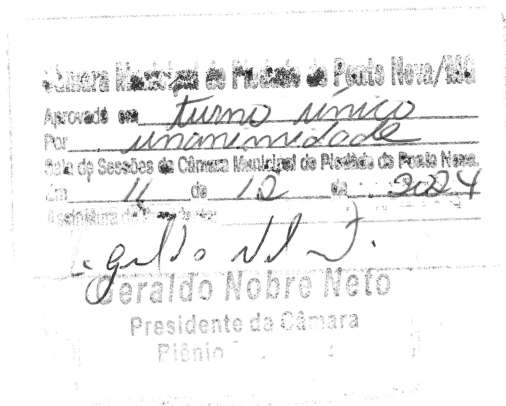 Câmara Municipal de Piedade de Ponte Nova/MG
Aprovado em turno único
Por unanimidade
Sala de Sessões da Câmara Municipal de Piedade de Ponte Nova.
Em 11 de 12 de 2024
Assinatura do Presidente:
Geraldo Nobre Neto
Presidente da Câmara
Biênio